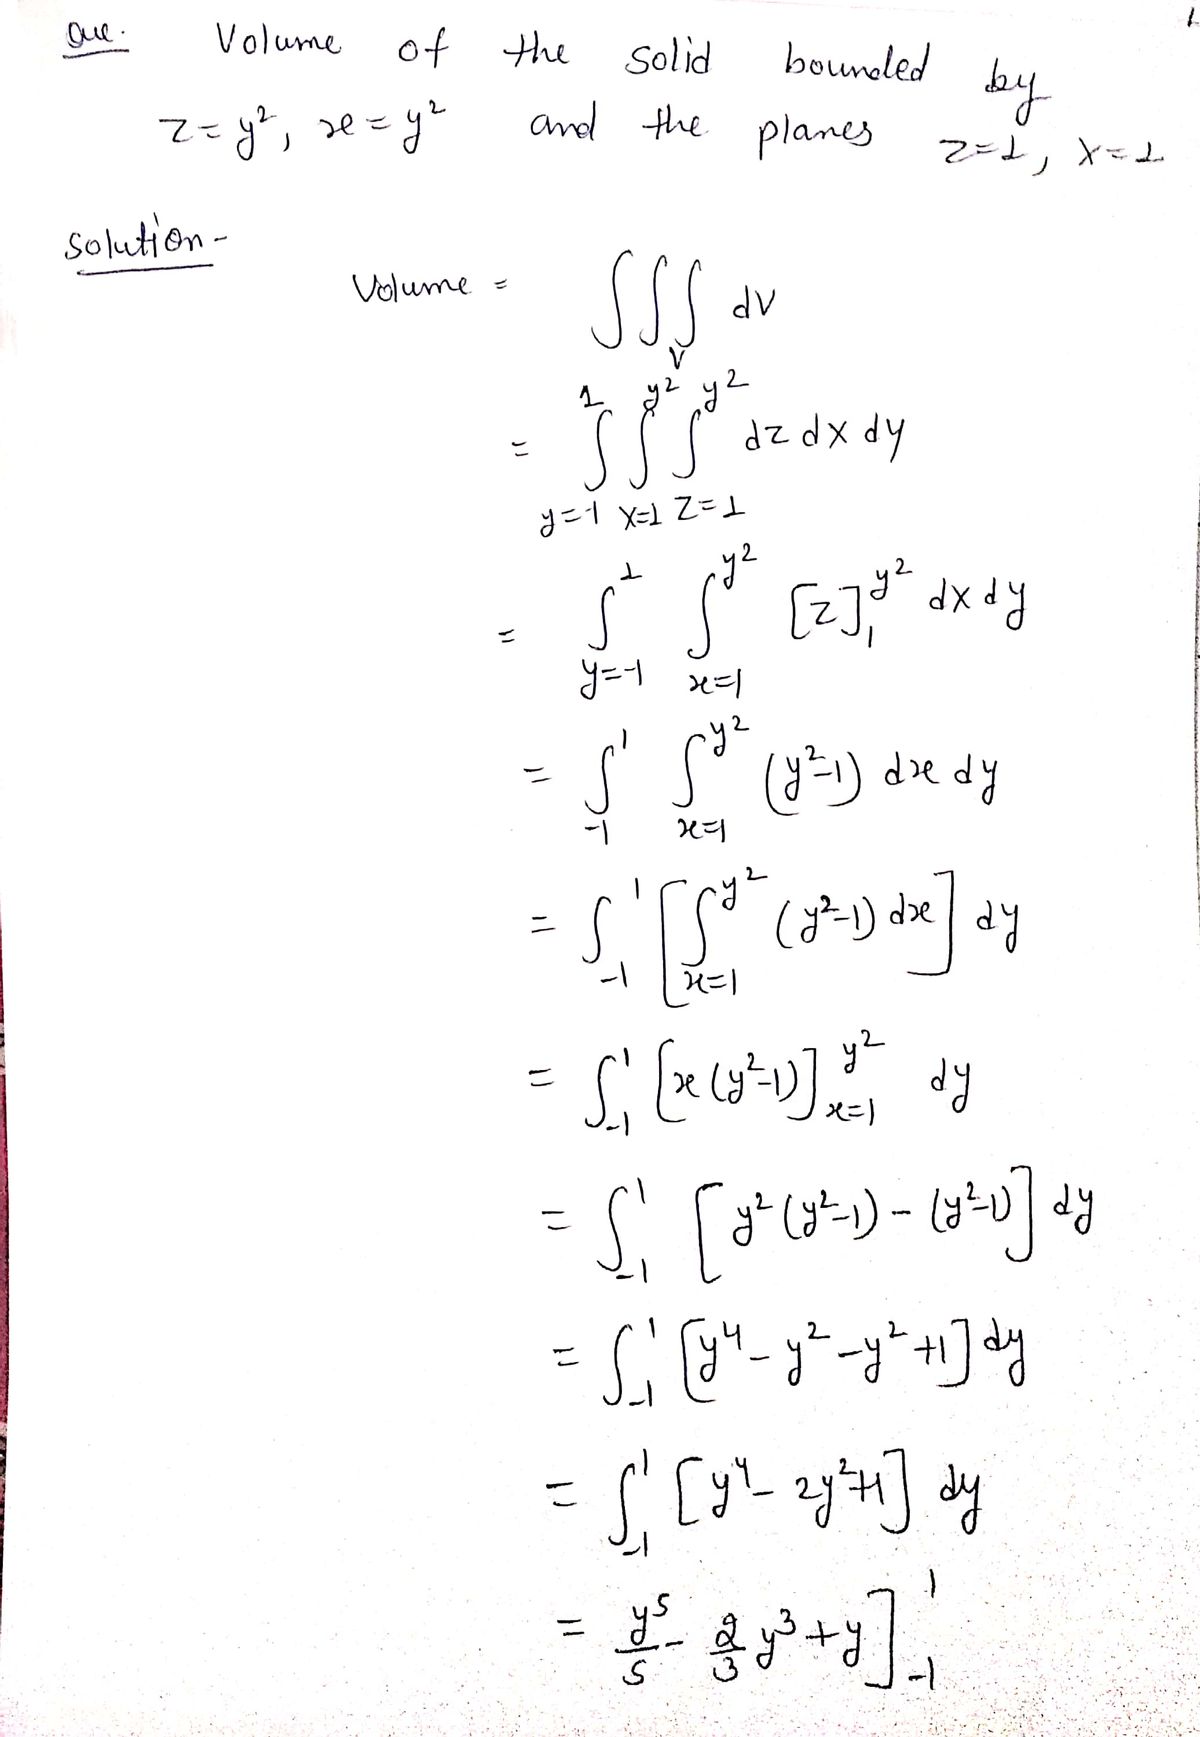 Que. Volume of the solid bounded by
z = y², x = y² and the planes z=1, x=1
Solution -
Volume = ∫∫∫_V dV
= ∫_{y=-1}^{1} ∫_{x=1}^{y²} ∫_{z=1}^{y²} dz dx dy
= ∫_{y=-1}^{1} ∫_{x=1}^{y²} [z]_1^{y²} dx dy
= ∫_{-1}^{1} ∫_{x=1}^{y²} (y²-1) dx dy
= ∫_{-1}^{1} [∫_{x=1}^{y²} (y²-1) dx] dy
= ∫_{-1}^{1} [x(y²-1)]_{x=1}^{y²} dy
= ∫_{-1}^{1} [y²(y²-1) - (y²-1)] dy
= ∫_{-1}^{1} [y⁴ - y² - y² + 1] dy
= ∫_{-1}^{1} [y⁴ - 2y² + 1] dy
= y⁵/5 - 2/3 y³ + y]_{-1}^{1}